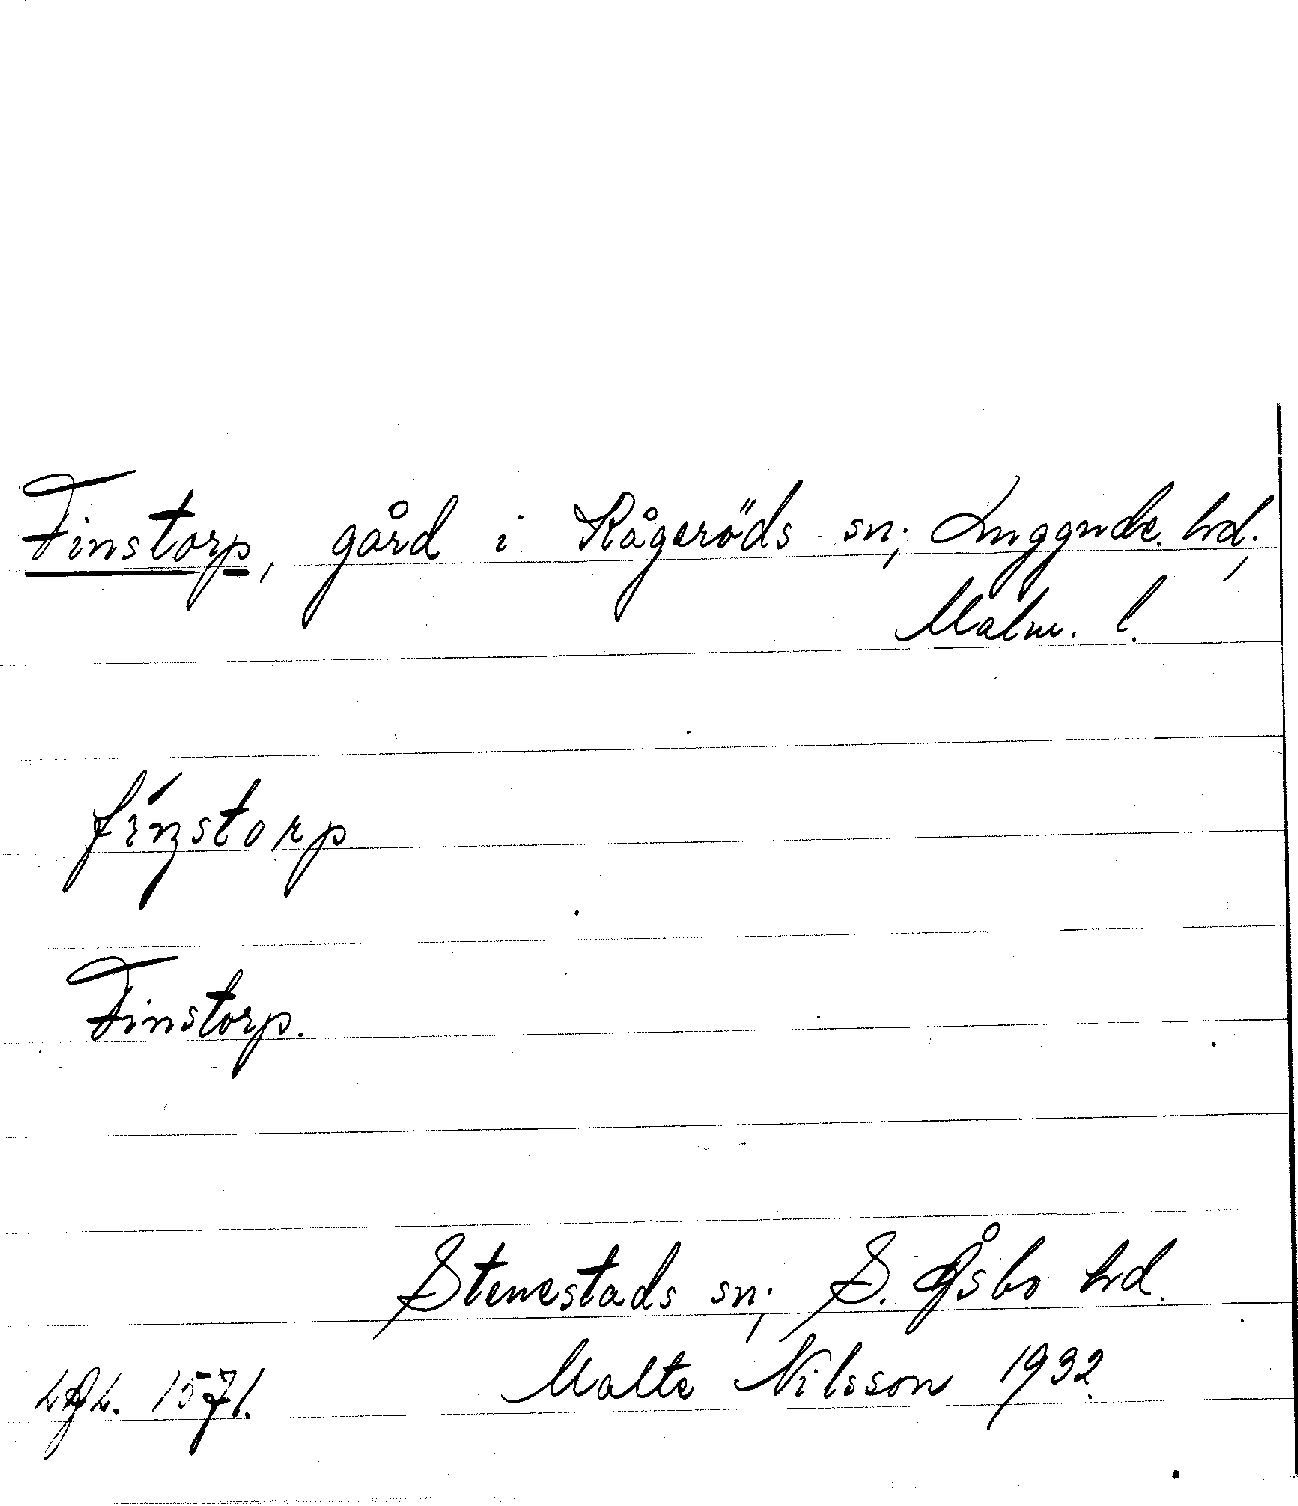 Finstorp, gård i Kågeröds sn; Luggude hd;
Malm. l.
finstorp
Finstorp.
Stenestads sn; S. Åsbo hd.
Malte Nilsson 1932.
1571.